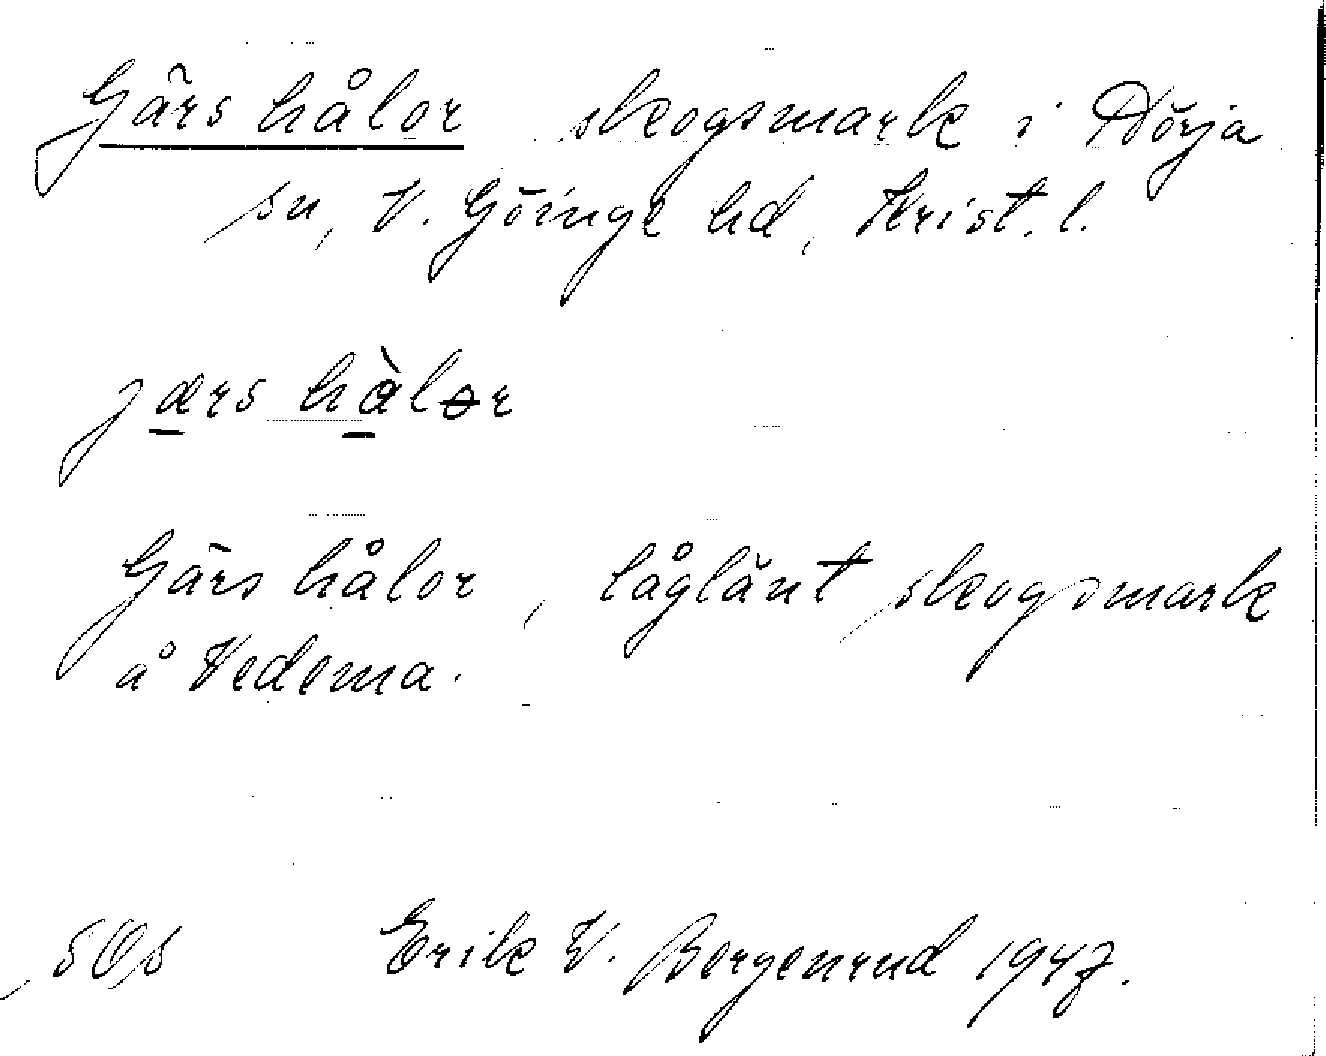 Gärs hålor skogsmark i Nörja
sn, V. Göinge hd, Krist. l.
jærs hàlər
Gärs hålor, låglänt skogsmark
å Vedema.
sOs Erik V. Bergenrud 1947.